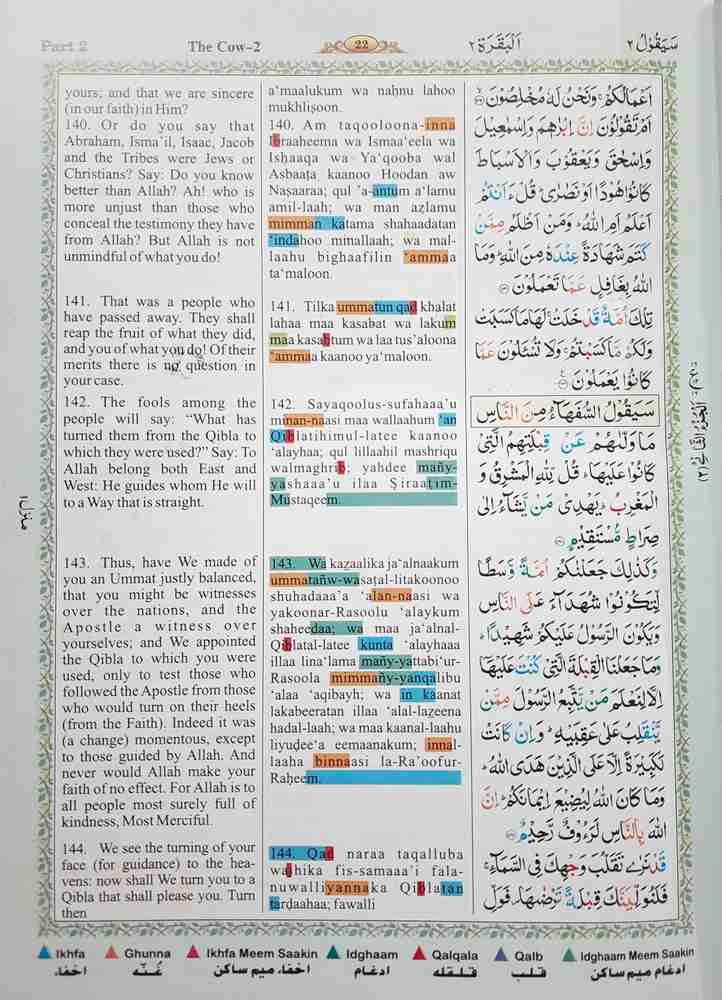 Part 2
The Cow–2
22
اَلْبَقَرَة ٢
سَيَقُوْلُ ٢
yours; and that we are sincere
(in our faith) in Him?
140. Or do you say that
Abraham, Isma'il, Isaac, Jacob
and the Tribes were Jews or
Christians? Say: Do you know
better than Allah? Ah! who is
more unjust than those who
conceal the testimony they have
from Allah? But Allah is not
unmindful of what you do!
141. That was a people who
have passed away. They shall
reap the fruit of what they did,
and you of what you do! Of their
merits there is no question in
your case.
142. The fools among the
people will say: “What has
turned them from the Qibla to
which they were used?” Say: To
Allah belong both East and
West: He guides whom He will
to a Way that is straight.
143. Thus, have We made of
you an Ummat justly balanced,
that you might be witnesses
over the nations, and the
Apostle a witness over
yourselves; and We appointed
the Qibla to which you were
used, only to test those who
followed the Apostle from those
who would turn on their heels
(from the Faith). Indeed it was
(a change) momentous, except
to those guided by Allah. And
never would Allah make your
faith of no effect. For Allah is to
all people most surely full of
kindness, Most Merciful.
144. We see the turning of your
face (for guidance) to the hea-
vens: now shall We turn you to a
Qibla that shall please you. Turn
then
a‘maalukum wa naḥnu lahoo
mukhliṣoon.
140. Am taqooloona-inna
Ibraaheema wa Ismaa‘eela wa
Isḥaaqa wa Ya‘qooba wal
Asbaaṭa kaanoo Hoodan aw
Naṣaaraa; qul ’a-antum a‘lamu
amil-laah; wa man aẓlamu
mimman katama shahaadatan
‘indahoo minallaah; wa mal-
laahu bighaafilin ‘ammaa
ta‘maloon.
141. Tilka ummatun qad khalat
lahaa maa kasabat wa lakum
maa kasabtum wa laa tus’aloona
‘ammaa kaanoo ya‘maloon.
142. Sayaqoolus-sufahaaa’u
minan-naasi maa wallaahum ‘an
Qiblatihimul-latee kaanoo
‘alayhaa; qul lillaahil mashriqu
walmaghrib; yahdee mañy-
yashaaa’u ilaa Ṣiraaṭim-
Mustaqeem.
143. Wa kaẓaalika ja‘alnaakum
ummatañw-wasaṭal-litakoonoo
shuhadaaa’a ‘alan-naasi wa
yakoonar-Rasoolu ‘alaykum
shaheedaa; wa maa ja‘alnal-
Qiblatal-latee kunta ‘alayhaaa
illaa lina‘lama mañy-yattabi‘ur-
Rasoola mimmañy-yanqalibu
‘alaa ‘aqibayh; wa in kaanat
lakabeeratan illaa ‘alal-laẓeena
hadal-laah; wa maa kaanal-laahu
liyuḍee‘a eemaanakum; innal-
laaha binnaasi la-Ra’oofur-
Raḥeem.
144. Qad naraa taqalluba
wajhika fis-samaaa’i fala-
nuwalliyannaka Qiblatan
tarḍaahaa; fawalli
اَعْمَالُكُمْ ۚ وَنَحْنُ لَهٗ مُخْلِصُوْنَ
اَمْ تَقُوْلُوْنَ اِنَّ اِبْرٰهٖمَ وَاِسْمٰعِيْلَ
وَاِسْحٰقَ وَيَعْقُوْبَ وَالْاَسْبَاطَ
كَانُوْا هُوْدًا اَوْ نَصٰرٰى ؕ قُلْ ءَاَنْتُمْ
اَعْلَمُ اَمِ اللّٰهُ ؕ وَمَنْ اَظْلَمُ مِمَّنْ
كَتَمَ شَهَادَةً عِنْدَهٗ مِنَ اللّٰهِ ؕ وَمَا
اللّٰهُ بِغَافِلٍ عَمَّا تَعْمَلُوْنَ
تِلْكَ اُمَّةٌ قَدْ خَلَتْ ۚ لَهَا مَا كَسَبَتْ
وَلَكُمْ مَّا كَسَبْتُمْ ۚ وَلَا تُسْـَٔلُوْنَ عَمَّا
كَانُوْا يَعْمَلُوْنَ
سَيَقُوْلُ السُّفَهَآءُ مِنَ النَّاسِ
مَا وَلّٰىهُمْ عَنْ قِبْلَتِهِمُ الَّتِيْ
كَانُوْا عَلَيْهَا ؕ قُلْ لِّلّٰهِ الْمَشْرِقُ وَ
الْمَغْرِبُ ؕ يَهْدِيْ مَنْ يَّشَآءُ اِلٰى
صِرَاطٍ مُّسْتَقِيْمٍ
وَكَذٰلِكَ جَعَلْنٰكُمْ اُمَّةً وَّسَطًا
لِّتَكُوْنُوْا شُهَدَآءَ عَلَى النَّاسِ
وَيَكُوْنَ الرَّسُوْلُ عَلَيْكُمْ شَهِيْدًا ؕ
وَمَا جَعَلْنَا الْقِبْلَةَ الَّتِيْ كُنْتَ عَلَيْهَا
اِلَّا لِنَعْلَمَ مَنْ يَّتَّبِعُ الرَّسُوْلَ مِمَّنْ
يَّنْقَلِبُ عَلٰى عَقِبَيْهِ ؕ وَاِنْ كَانَتْ
لَكَبِيْرَةً اِلَّا عَلَى الَّذِيْنَ هَدَى اللّٰهُ ؕ
وَمَا كَانَ اللّٰهُ لِيُضِيْعَ اِيْمَانَكُمْ ؕ اِنَّ
اللّٰهَ بِالنَّاسِ لَرَءُوْفٌ رَّحِيْمٌ
قَدْ نَرٰى تَقَلُّبَ وَجْهِكَ فِى السَّمَآءِ ۚ
فَلَنُوَلِّيَنَّكَ قِبْلَةً تَرْضٰىهَا ۪ فَوَلِّ
اَلْجُزْءُ الثَّانِيْ (٢)
منزل ١
Ikhfa
Ghunna
Ikhfa Meem Saakin
Idghaam
Qalqala
Qalb
Idghaam Meem Saakin
اخفاء
غُنّه
اخفاء میم ساکن
ادغام
قلقله
قلب
ادغام میم ساکن